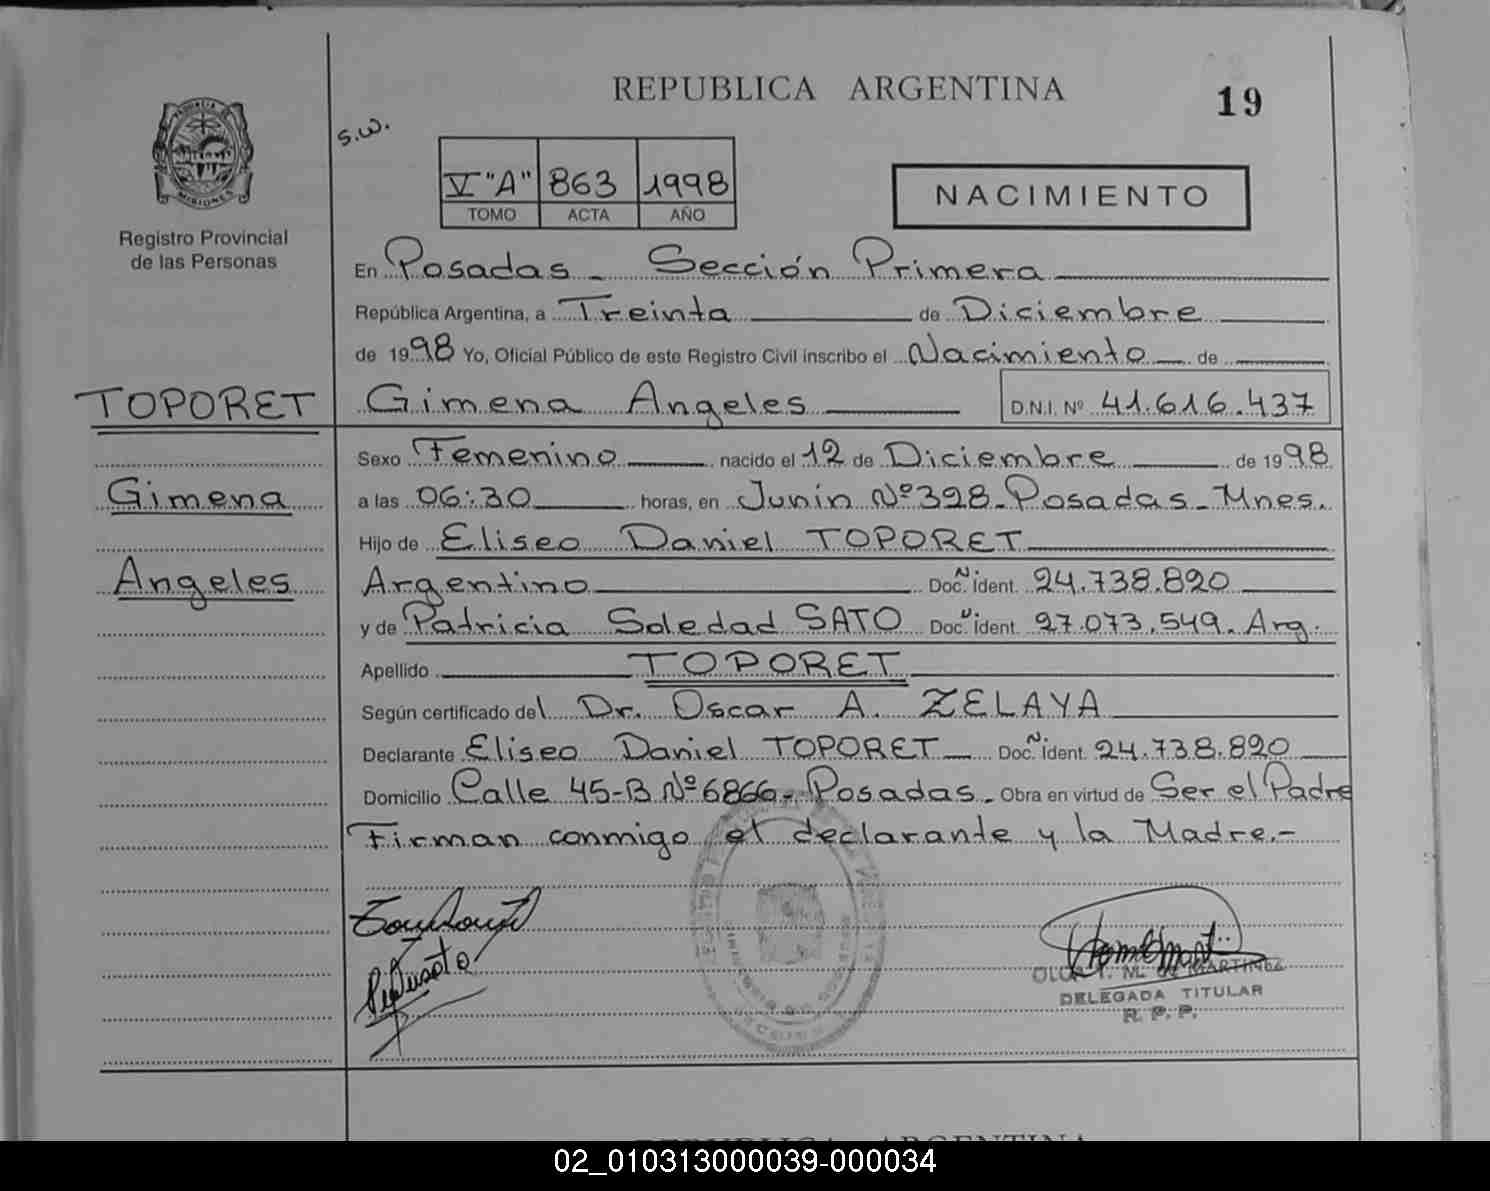 REPUBLICA ARGENTINA
19
s.w.
V "A" 863 1998
TOMO ACTA AÑO
NACIMIENTO
MISIONES
Registro Provincial
de las Personas
En Posadas - Sección Primera
República Argentina, a Treinta de Diciembre
de 1998 Yo, Oficial Público de este Registro Civil inscribo el Nacimiento de
TOPORET
Gimena Angeles D.N.I. Nº 41.616.437
Sexo Femenino nacido el 12 de Diciembre de 1998
Gimena
a las 06:30 horas, en Junín Nº 328- Posadas- Mnes.
Hijo de Eliseo Daniel TOPORET
Angeles
Argentino Doc. N. Ident. 24.738.820
y de Patricia Soledad SATO Doc. N. Ident. 27.073.549. Arg.
Apellido TOPORET
Según certificado del Dr. Oscar A. ZELAYA
Declarante Eliseo Daniel TOPORET Doc. N. Ident. 24.738.820
Domicilio Calle 45-B Nº 6866- Posadas- Obra en virtud de Ser el Padre
Firman conmigo el declarante y la Madre.-
MARTINEZ
DELEGADA TITULAR
R. P. P.
REPUBLICA ARGENTINA
02_010313000039-000034